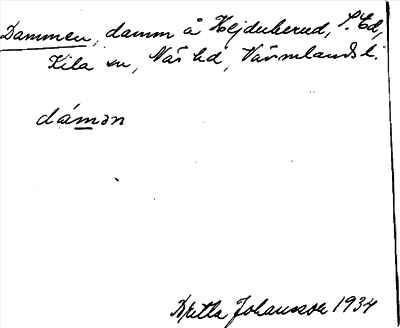 Dammen, damm å Hejduberud, S. Ed,
Kila sn, Näs hd, Värmlands l.
dámǝn
Britta Johansson 1934